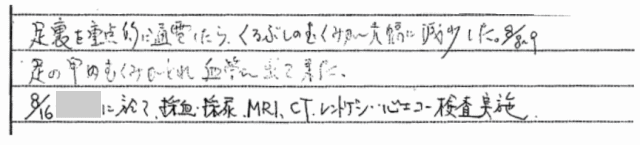 足裏を重点的に通電したら、くるぶしのむくみが大幅に減少した。8/8.9
足の甲のむくみがとれ血管が出て来た。
8/16 に於て、採血・採尿、MRI、CT、レントゲン・心エコー検査実施